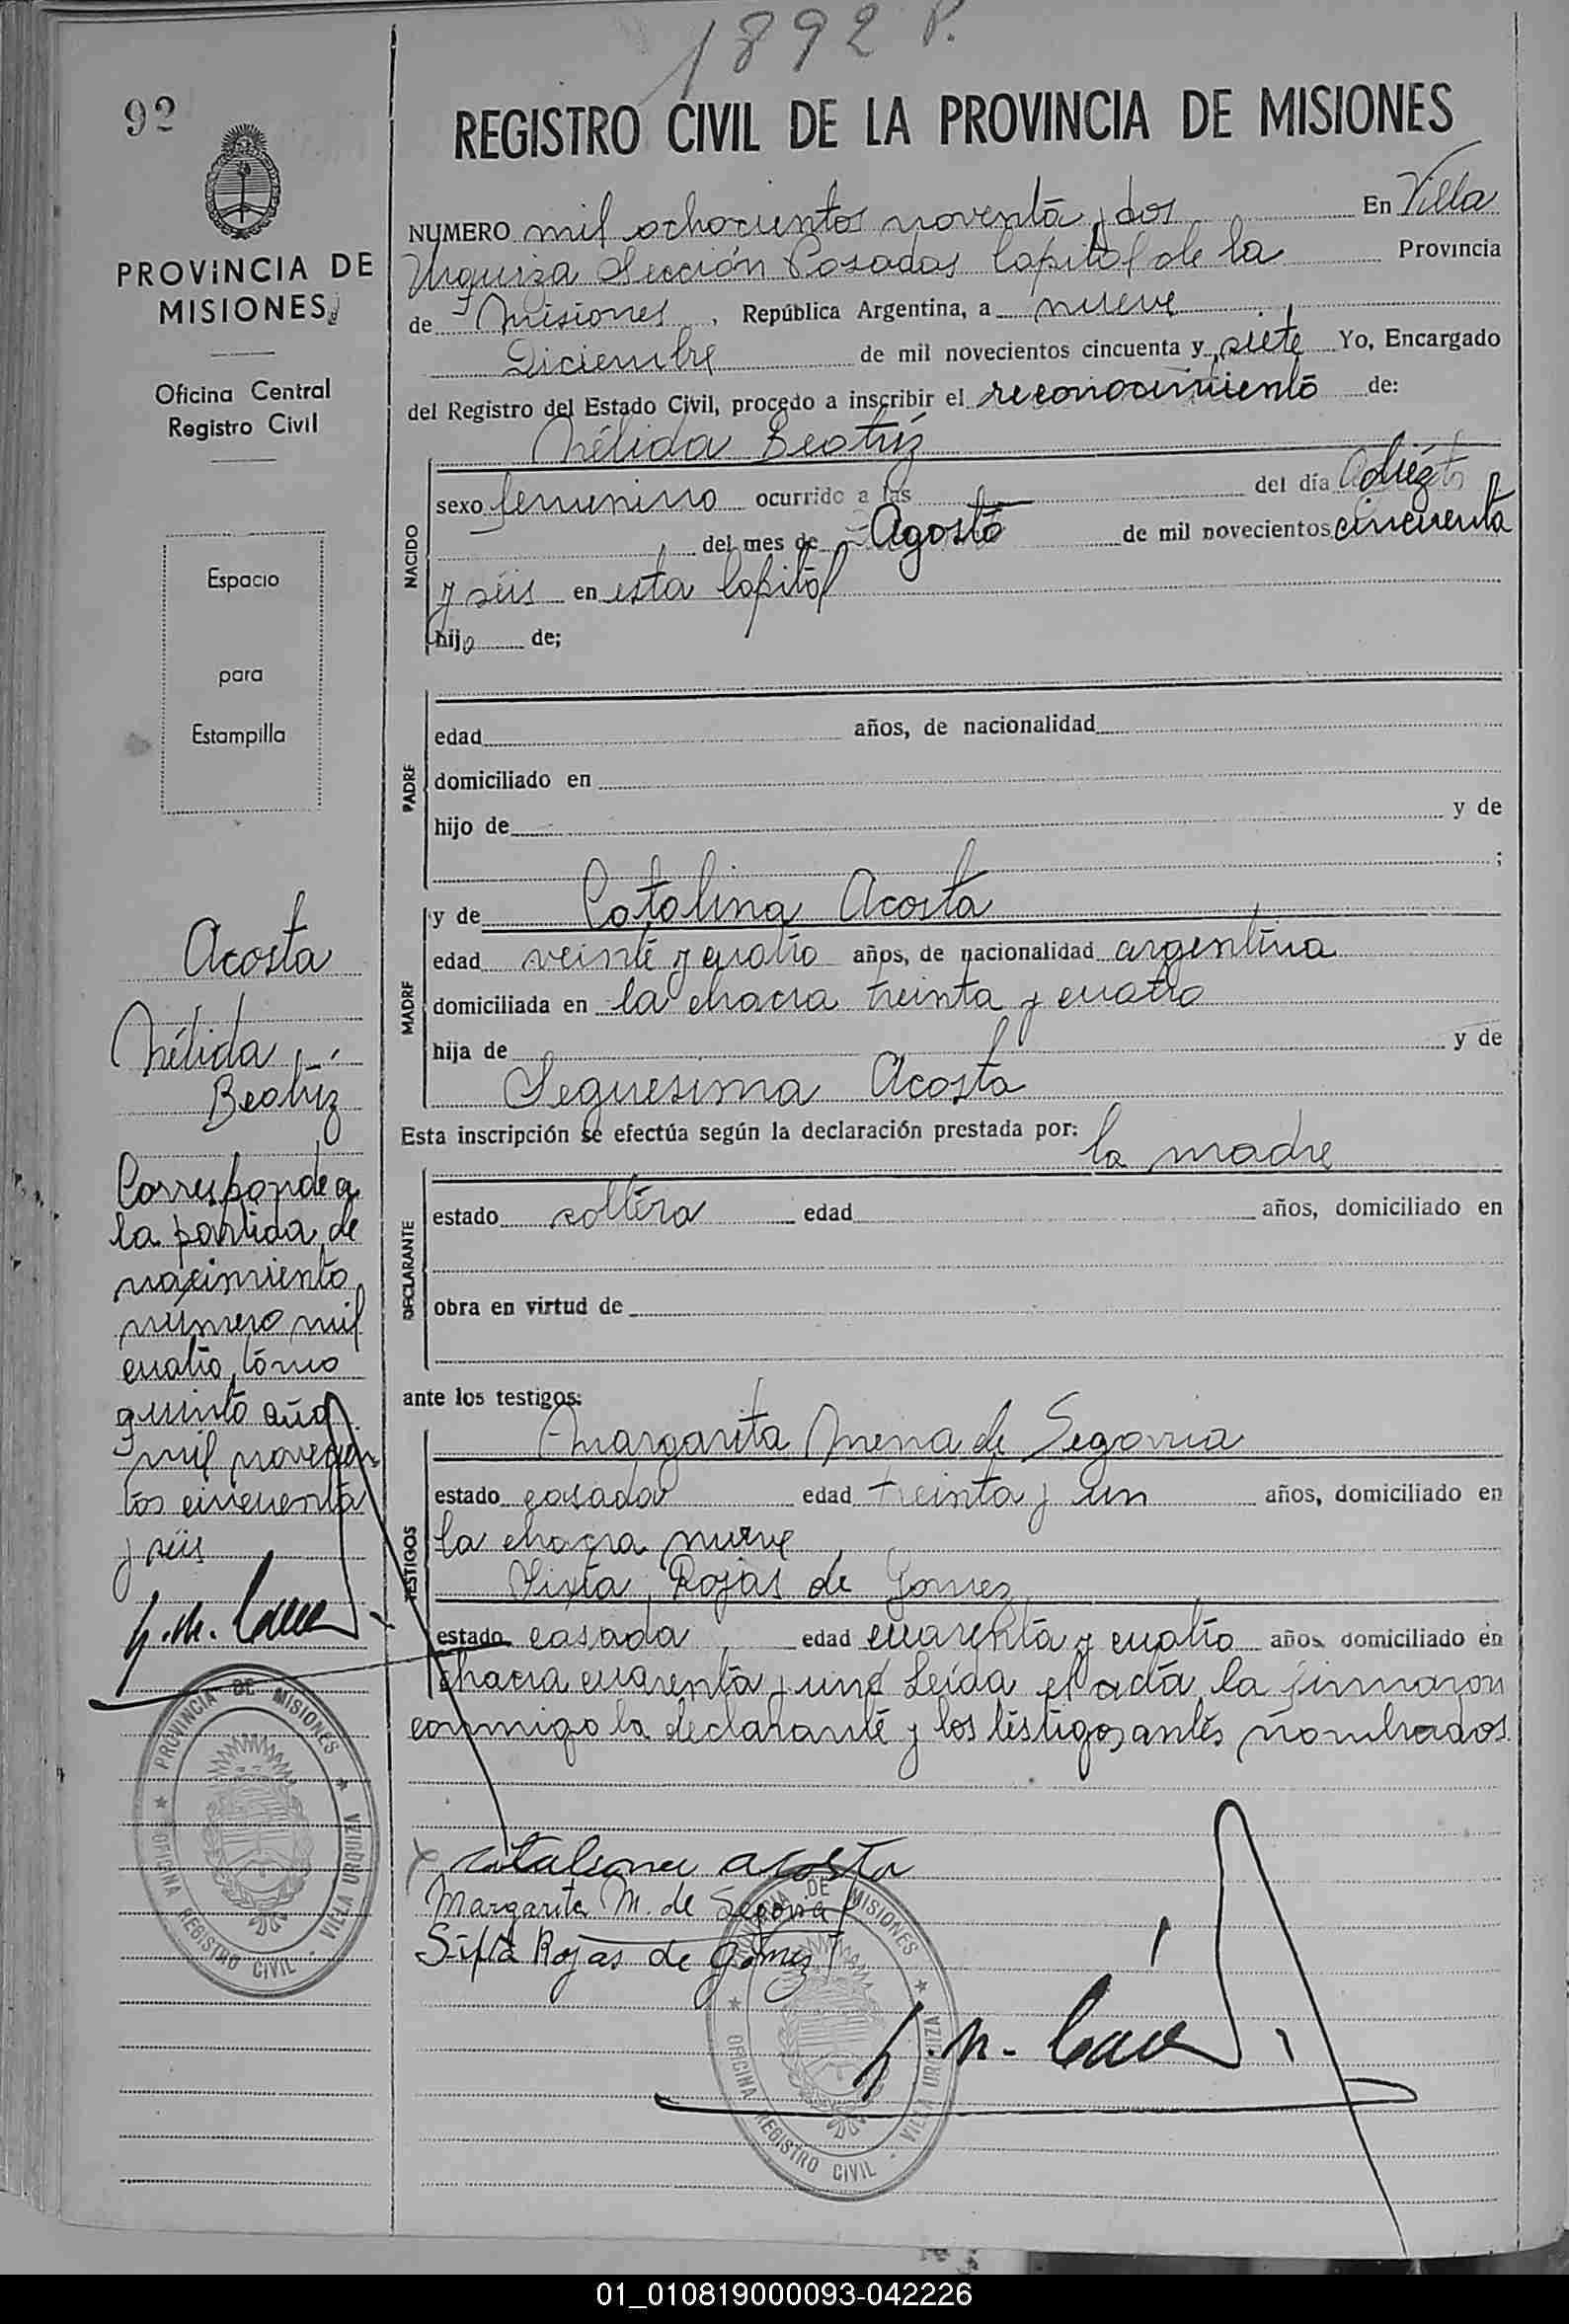 1892 P.
92
REGISTRO CIVIL DE LA PROVINCIA DE MISIONES
PROVINCIA DE
MISIONES
Oficina Central
Registro Civil
Espacio
para
Estampilla
NUMERO mil ochocientos noventa y dos En Villa
Urquiza Sección Posadas Capital de la Provincia
de Misiones, República Argentina, a nueve
Diciembre de mil novecientos cincuenta y siete Yo, Encargado
del Registro del Estado Civil, procedo a inscribir el reconocimiento de:
Nélida Beatríz
NACIDO
sexo femenino ocurrido a las del día diéz
del mes de Agosto de mil novecientos cincuenta
y séis en esta Capital
hija de;
PADRE
edad años, de nacionalidad
domiciliado en
hijo de y de
;
MADRE
y de Catalina Acosta
edad veinte y cuatro años, de nacionalidad argentina
domiciliada en la chacra treinta y cuatro
hija de y de
Seguesima Acosta
Esta inscripción se efectúa según la declaración prestada por: la madre
DECLARANTE
estado soltera edad años, domiciliado en
obra en virtud de
ante los testigos:
TESTIGOS
Margarita Mena de Segovia
estado casada edad treinta y un años, domiciliado en
la chacra nueve
Sixta Rojas de Gomez
estado casada edad cuarenta y cuatro años domiciliado en
chacra cuarenta y uno Leída el acta, la firmaron
conmigo la declarante y los testigos antes nombrados.
Acosta
Nélida
Beatríz
Corresponde a
la partida de
nacimiento
número mil
cuatro, tómo
quinto año
mil novecien
tos cincuenta
y séis
PROVINCIA DE MISIONES
OFICINA REGISTRO CIVIL - VILLA URQUIZA
catalina acosta
Margarita M. de Segovia
Sixta Rojas de Gómez
PROVINCIA DE MISIONES
OFICINA REGISTRO CIVIL - VILLA URQUIZA
01_010819000093-042226